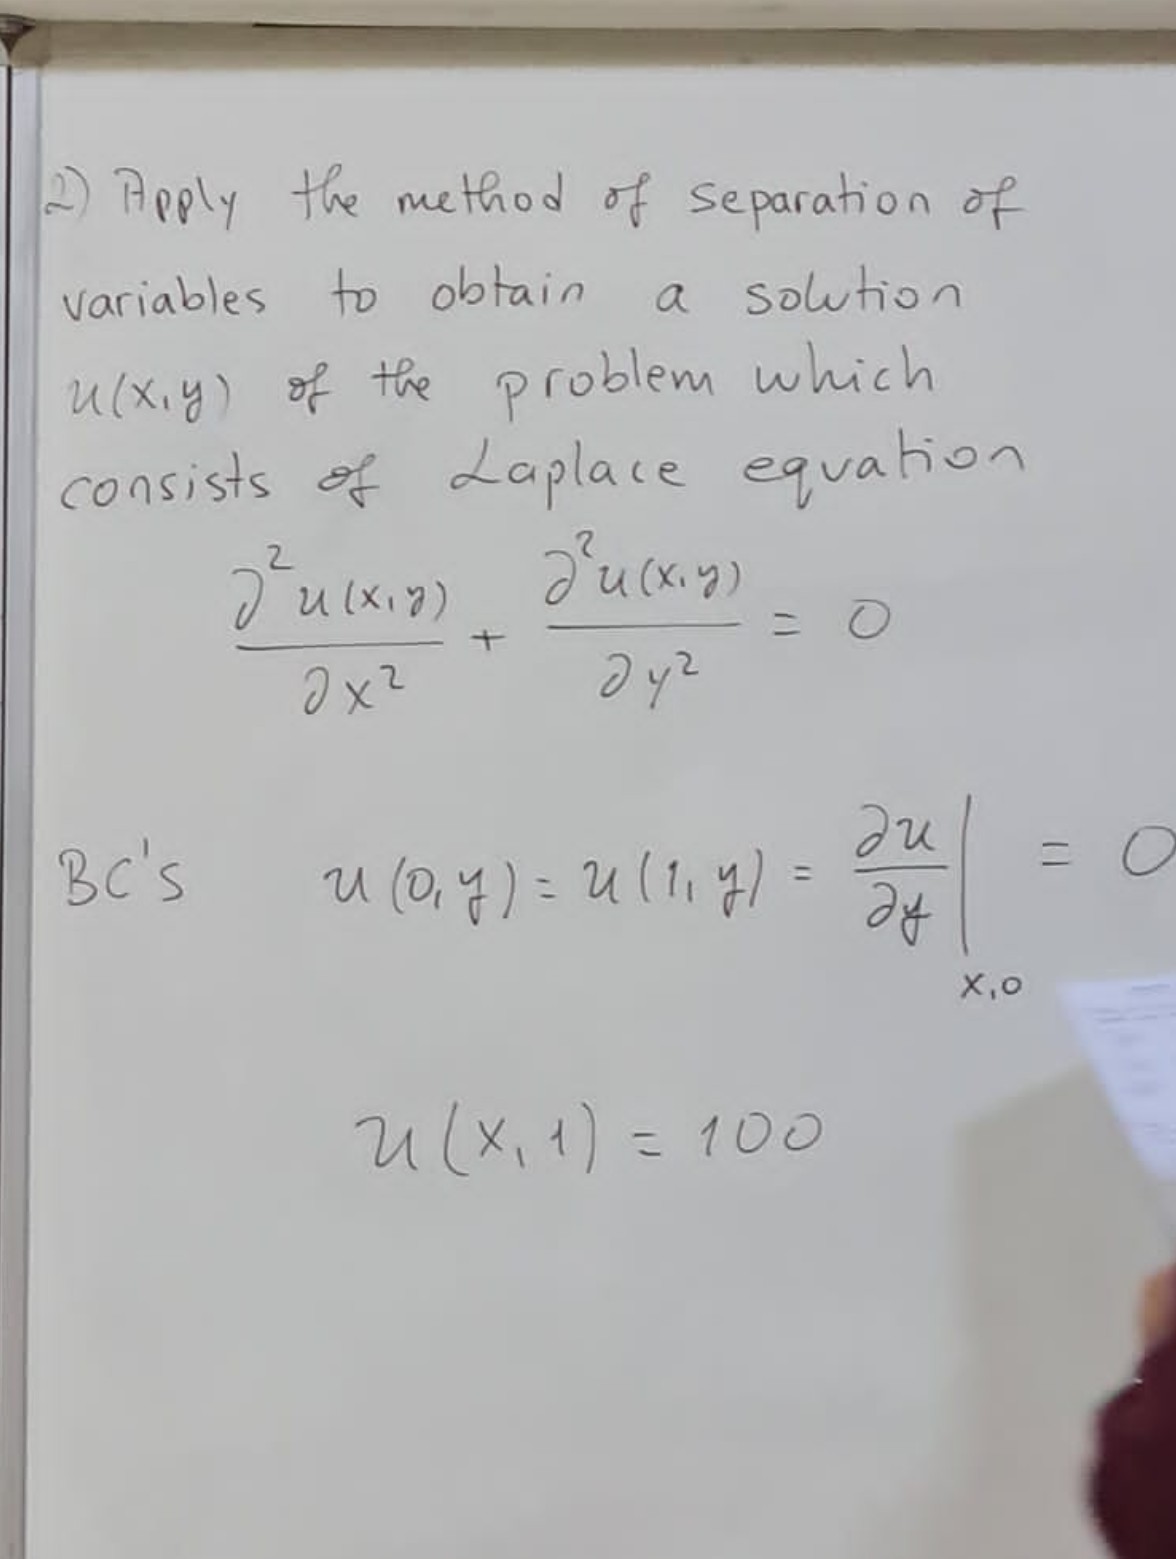 2) Apply the method of separation of
variables to obtain a solution
u(x,y) of the problem which
consists of Laplace equation
∂²u(x,y)/∂x² + ∂²u(x,y)/∂y² = 0
BC's u(0,y) = u(1,y) = ∂u/∂y |x,0 = 0
u(x,1) = 100